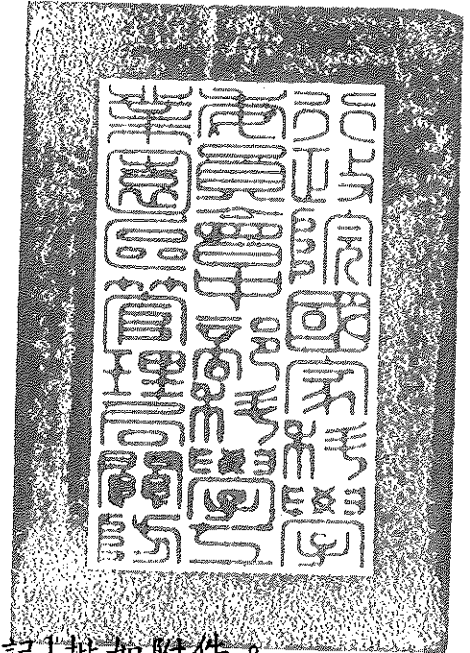 行政院國家科學
委員會中部科學工
業園區管理局關防
記1批如附件。